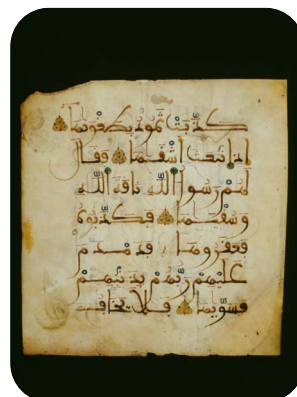 كذبت ثمود بطغويها
اذ انبعث اشقيها فقال
لهم رسول الله ناقة الله
وسقيها فكذبوه
فعقروها فدمدم
عليهم ربهم بذنبهم
فسويها فلا يخاف